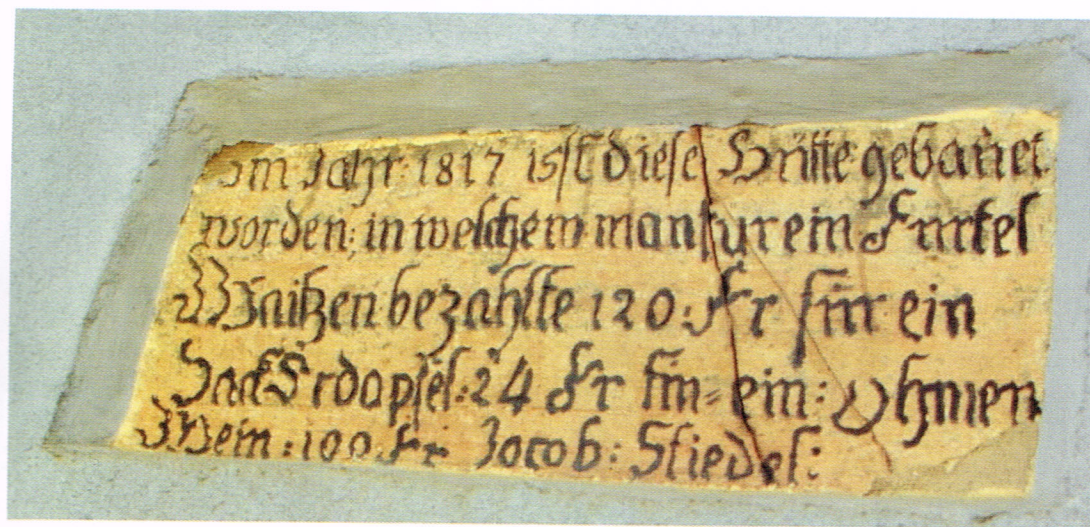 im Jahr 1817 isst diese Hütte gebauet
worden: in welchem man fur ein Furtel
Waitzen bezahlte 120: Fr für ein
Sack Erdöpfel: 24 Fr fur ein: Ohmen
Wein: 100 Fr Jacob: Stiedel: